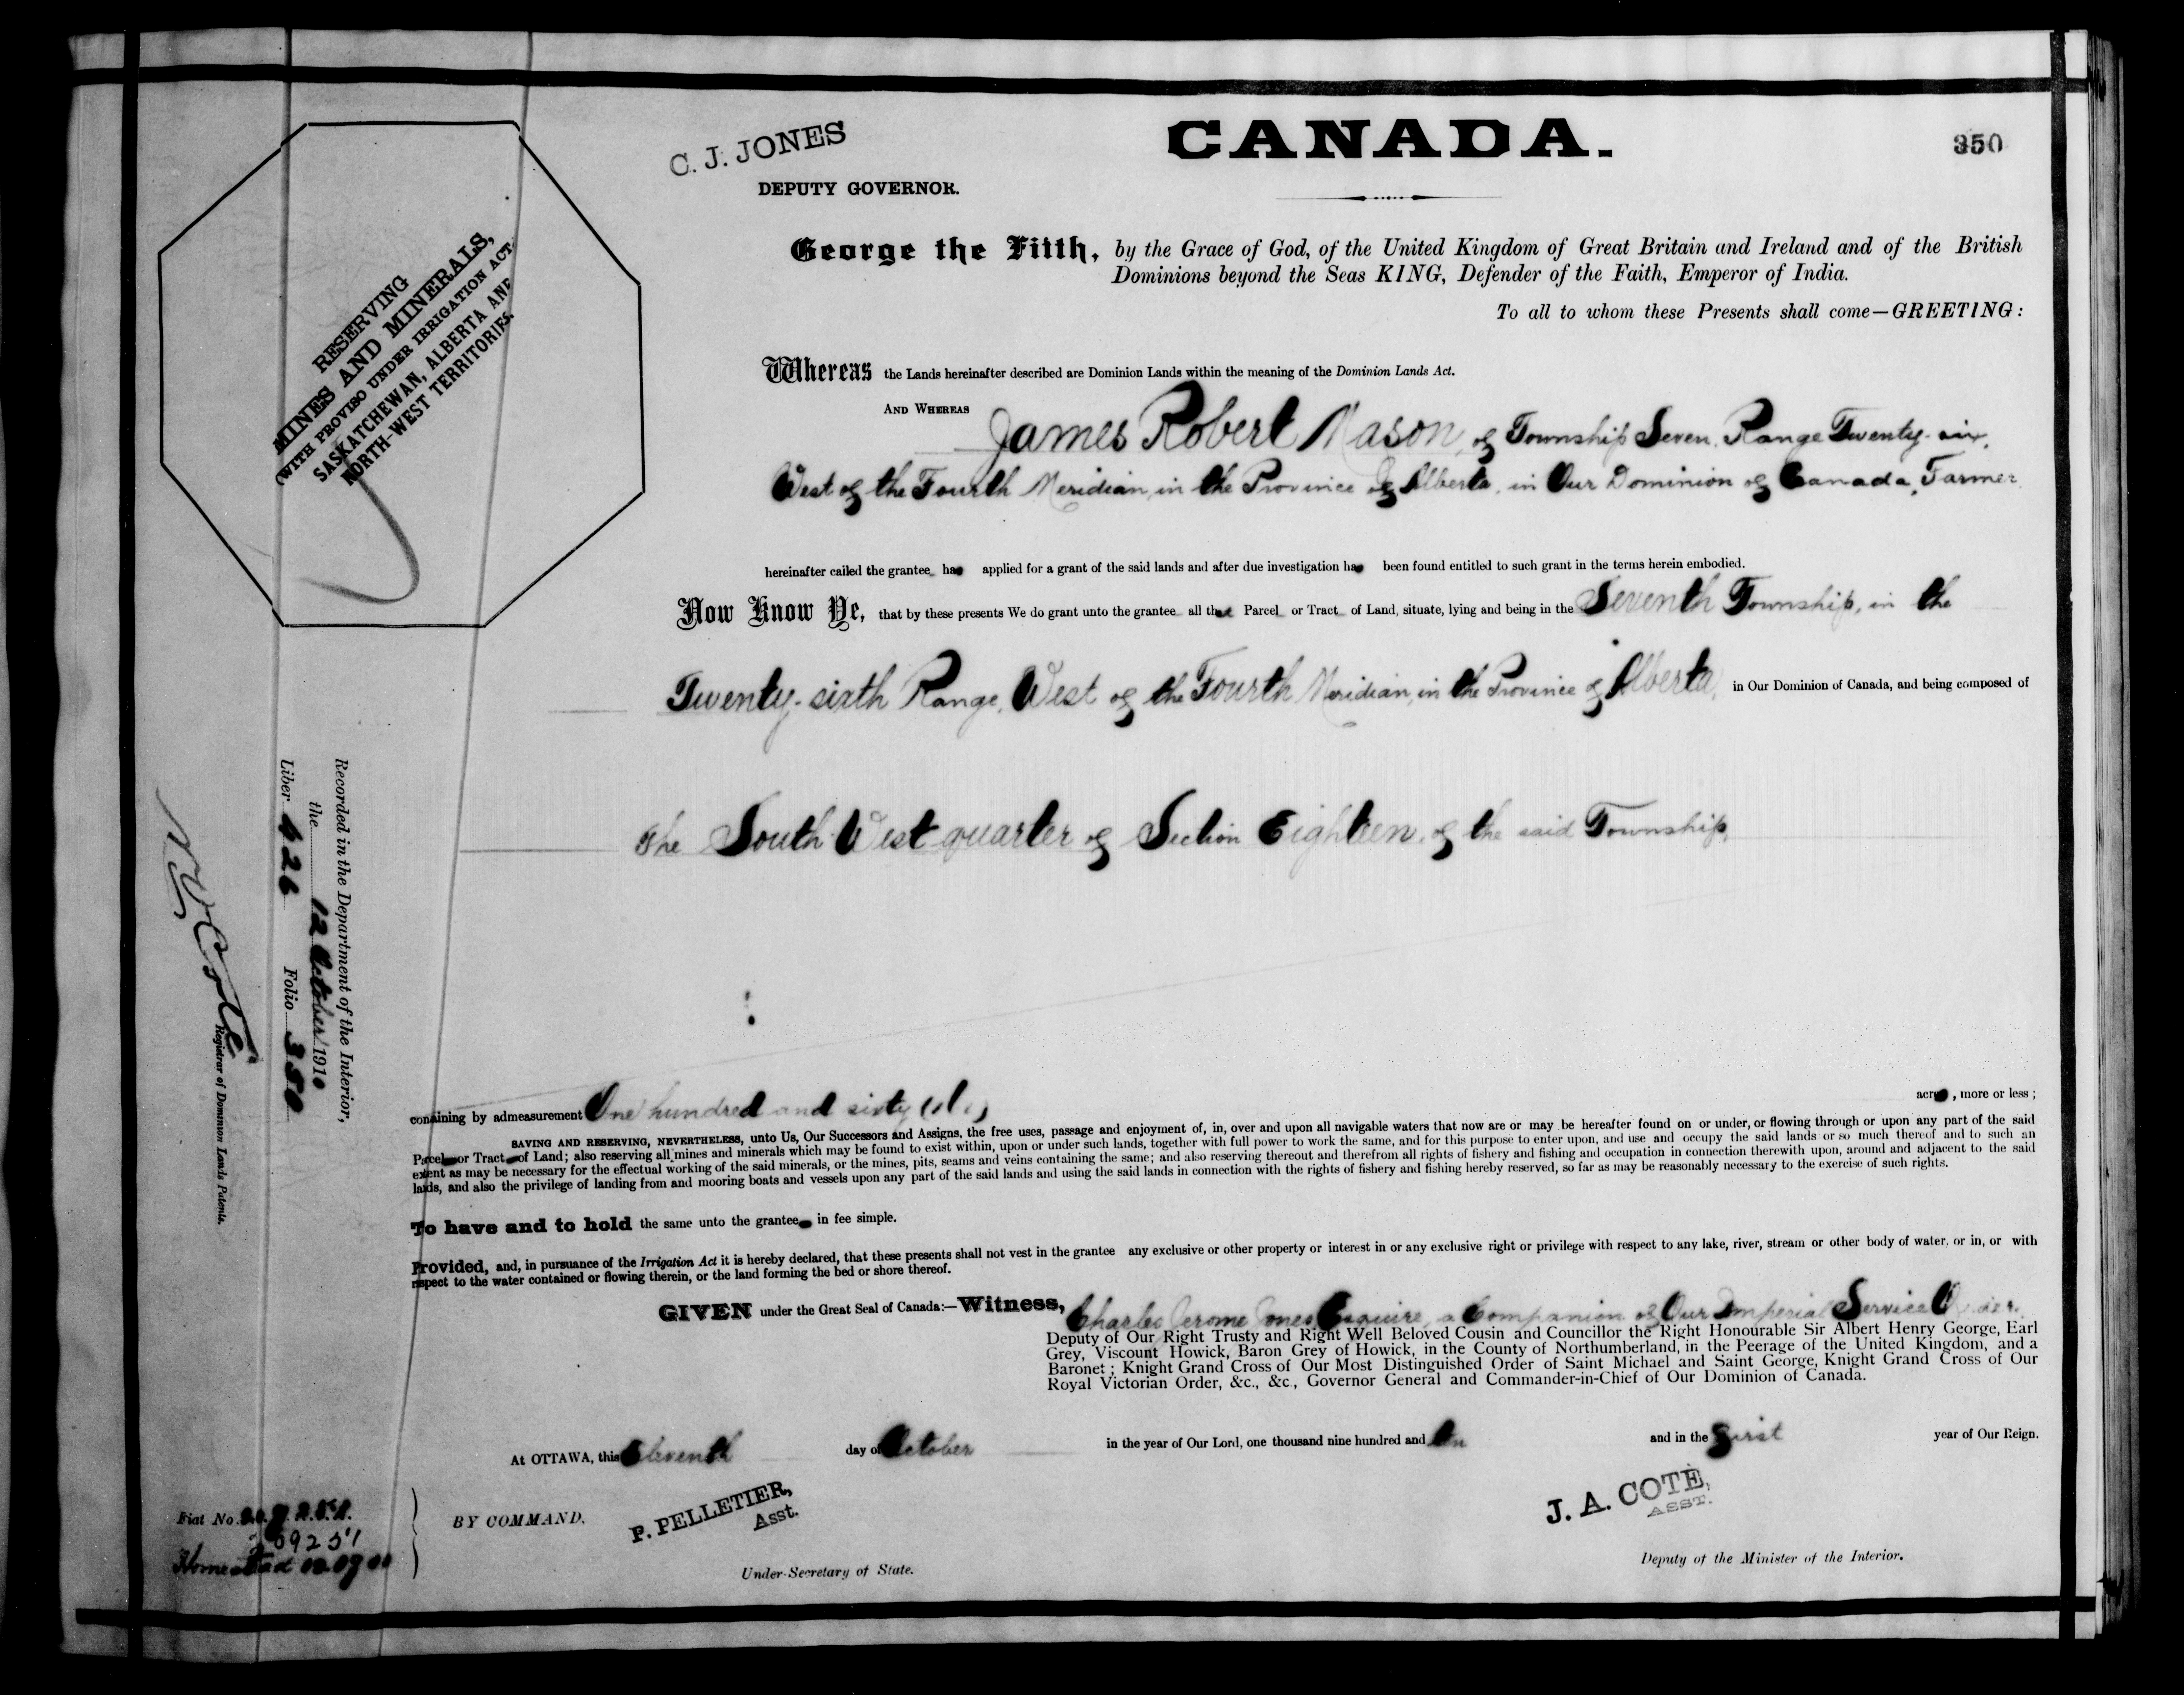 C. J. JONES
DEPUTY GOVERNOR.
CANADA.
350
George the Fifth, by the Grace of God, of the United Kingdom of Great Britain and Ireland and of the British
Dominions beyond the Seas KING, Defender of the Faith, Emperor of India.
To all to whom these Presents shall come—GREETING:
RESERVING
MINES AND MINERALS,
(WITH PROVISO UNDER IRRIGATION ACT
SASKATCHEWAN, ALBERTA AND
NORTH-WEST TERRITORIES.
Whereas the Lands hereinafter described are Dominion Lands within the meaning of the Dominion Lands Act.
AND WHEREAS James Robert Mason, of Township Seven, Range Twenty-six,
West of the Fourth Meridian, in the Province of Alberta, in Our Dominion of Canada, Farmer
hereinafter called the grantee has applied for a grant of the said lands and after due investigation has been found entitled to such grant in the terms herein embodied.
Now Know Ye, that by these presents We do grant unto the grantee all that Parcel or Tract of Land, situate, lying and being in the Seventh Township, in the
Twenty-sixth Range, West of the Fourth Meridian, in the Province of Alberta, in Our Dominion of Canada, and being composed of
The South West quarter of Section Eighteen, of the said Township,
Recorded in the Department of the Interior,
the 12 October 1910
Liber 426 Folio 350
Registrar of Dominion Lands Patents.
containing by admeasurement One hundred and sixty acres, more or less;
SAVING AND RESERVING, NEVERTHELESS, unto Us, Our Successors and Assigns, the free uses, passage and enjoyment of, in, over and upon all navigable waters that now are or may be hereafter found on or under, or flowing through or upon any part of the said
Parcel or Tract of Land; also reserving all mines and minerals which may be found to exist within, upon or under such lands, together with full power to work the same, and for this purpose to enter upon, and use and occupy the said lands or so much thereof and to such an
extent as may be necessary for the effectual working of the said minerals, or the mines, pits, seams and veins containing the same; and also reserving thereout and therefrom all rights of fishery and fishing and occupation in connection therewith upon, around and adjacent to the said
lands, and also the privilege of landing from and mooring boats and vessels upon any part of the said lands and using the said lands in connection with the rights of fishery and fishing hereby reserved, so far as may be reasonably necessary to the exercise of such rights.
To have and to hold the same unto the grantee in fee simple.
Provided, and, in pursuance of the Irrigation Act it is hereby declared, that these presents shall not vest in the grantee any exclusive or other property or interest in or any exclusive right or privilege with respect to any lake, river, stream or other body of water, or in, or with
respect to the water contained or flowing therein, or the land forming the bed or shore thereof.
GIVEN under the Great Seal of Canada:—Witness, Charles Jerome Jones Esquire, a Companion of Our Imperial Service Order.
Deputy of Our Right Trusty and Right Well Beloved Cousin and Councillor the Right Honourable Sir Albert Henry George, Earl
Grey, Viscount Howick, Baron Grey of Howick, in the County of Northumberland, in the Peerage of the United Kingdom, and a
Baronet; Knight Grand Cross of Our Most Distinguished Order of Saint Michael and Saint George, Knight Grand Cross of Our
Royal Victorian Order, &c., &c., Governor General and Commander-in-Chief of Our Dominion of Canada.
At OTTAWA, this Eleventh day of October in the year of Our Lord, one thousand nine hundred and ten and in the First year of Our Reign.
BY COMMAND.
P. PELLETIER,
Asst.
Under-Secretary of State.
J. A. COTÉ,
ASST.
Deputy of the Minister of the Interior.
Fiat No.
Homestead